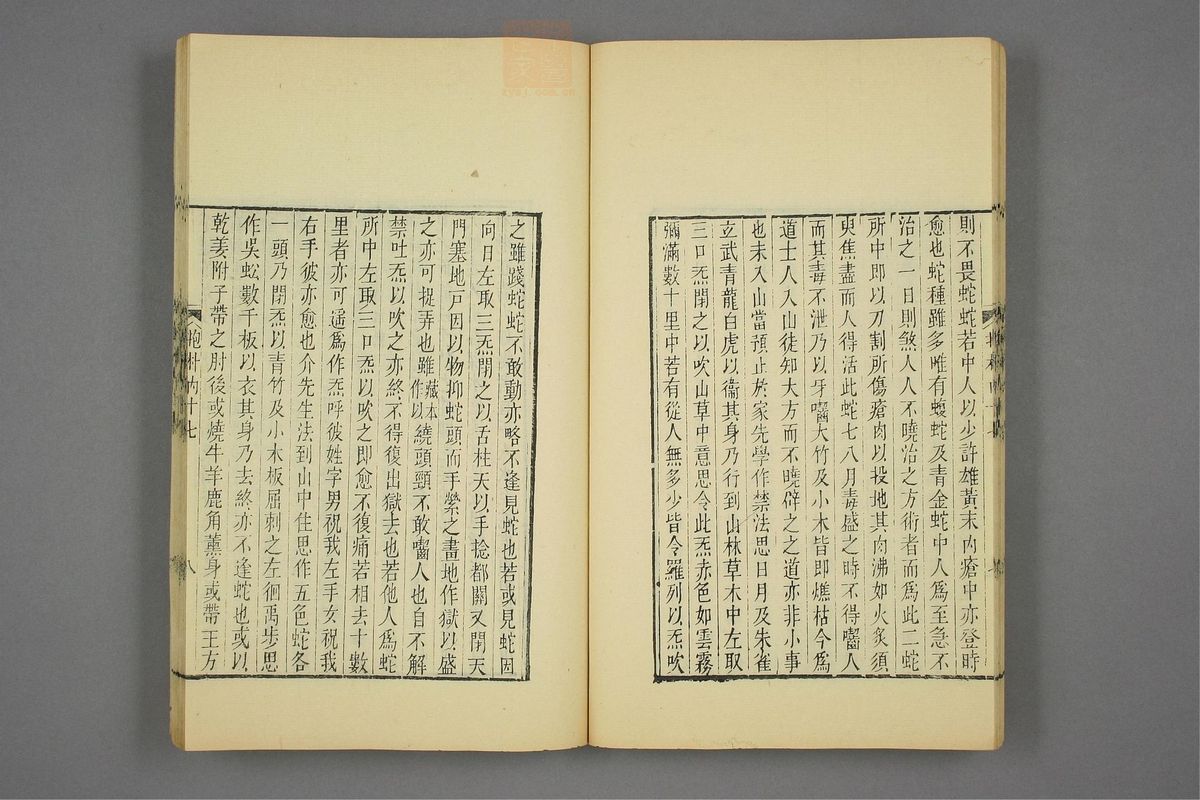 則不畏蛇蛇若中人以少許雄黃末內瘡中亦登時
愈也蛇種雖多唯有蝮蛇及青金蛇中人爲至急不
治之一日則煞人人不曉治之方術者而爲此二蛇
所中即以刀割所傷瘡肉以投地其肉沸如火炙須
臾焦盡而人得活此蛇七八月毒盛之時不得囓人
而其毒不泄乃以牙囓大竹及小木皆即燋枯今爲
道士人入山徒知大方而不曉辟之之道亦非小事
也未入山當預止於家先學作禁法思日月及朱雀
立武青龍白虎以衞其身乃行到山林草木中左取
三口炁閉之以吹山草中意思令此炁赤色如雲霧
彌滿數十里中若有從人無多少皆令羅列以炁吹
之雖踐蛇蛇不敢動亦略不逢見蛇也若或見蛇因
向日左取三炁閉之以舌柱天以手捻都關又閉天
門塞地戸因以物抑蛇頭而手縈之畫地作獄以盛
之亦可捉弄也雖藏本作以繞頭頸不敢囓人也自不解
禁吐炁以吹之亦終不得復出獄去也若他人爲蛇
所中左取三口炁以吹之即愈不復痛若相去十數
里者亦可遥爲作炁呼彼姓字男祝我左手女祝我
右手彼亦愈也介先生法到山中住思作五色蛇各
一頭乃閉炁以青竹及小木板屈刺之左徊禹步思
作吳蚣數千板以衣其身乃去終亦不逢蛇也或以
乾姜附子帶之肘後或燒牛羊鹿角薰身或帶王方
抱朴內十七
八